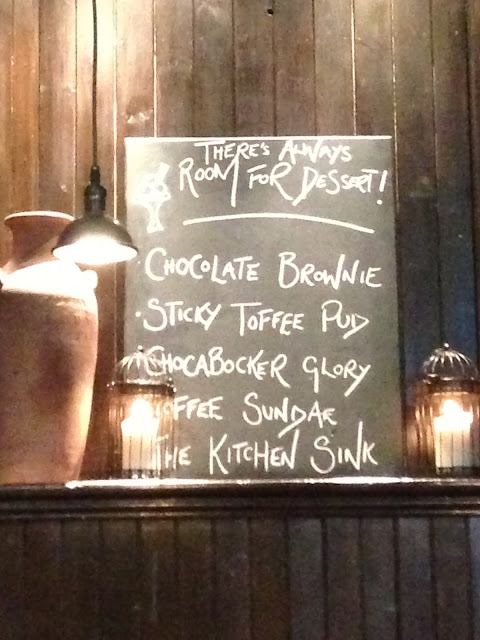 THERE'S ALWAYS
ROOM FOR DESSERT!
· CHOCOLATE BROWNIE
· STICKY TOFFEE PUD
· CHOCABOCKER GLORY
SUNDAE
THE KITCHEN SINK